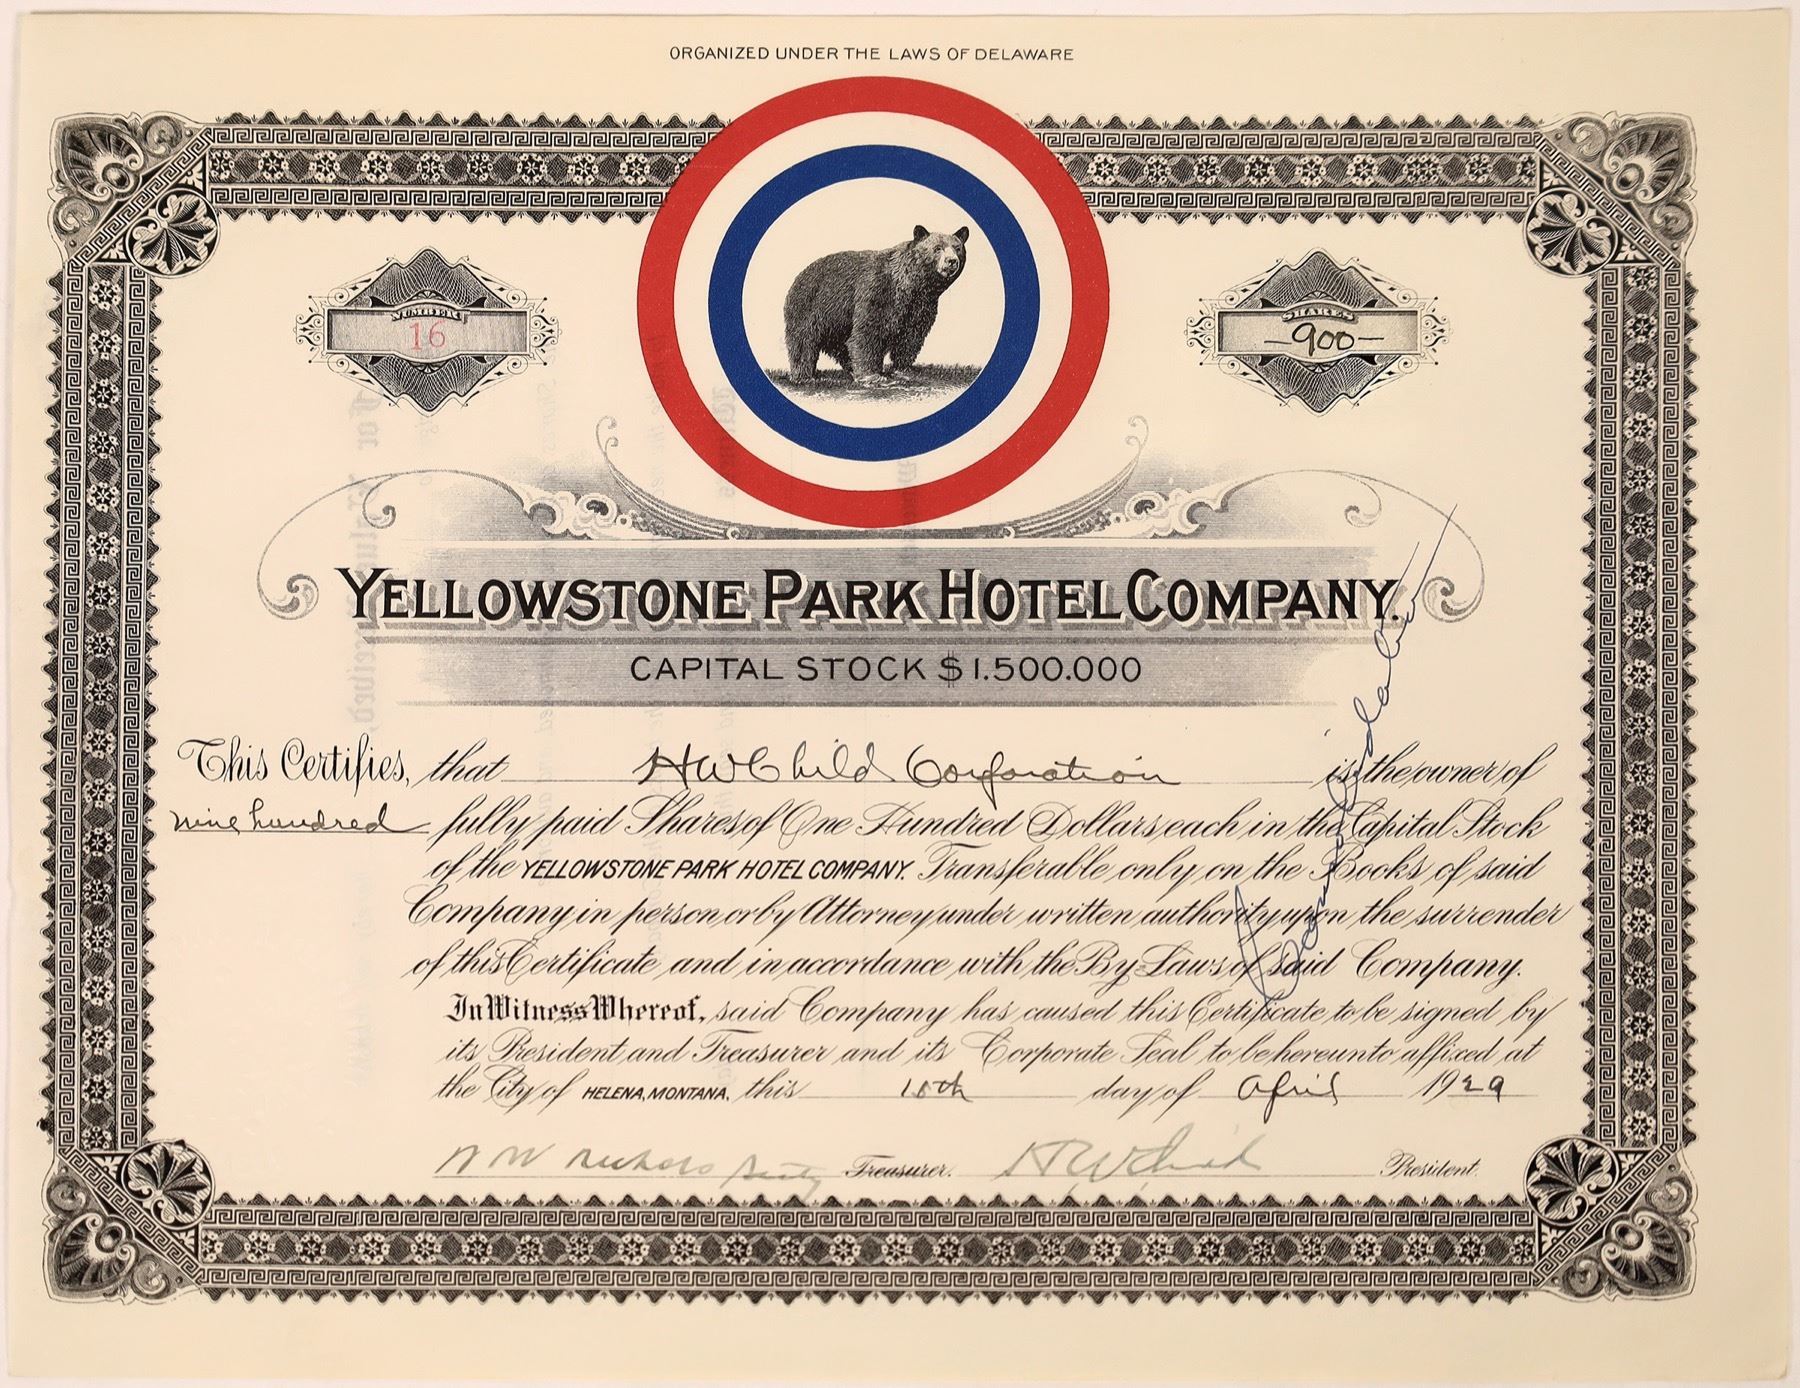 ORGANIZED UNDER THE LAWS OF DELAWARE
NUMBER
16
SHARES
-900-
YELLOWSTONE PARK HOTEL COMPANY.
CAPITAL STOCK $1.500.000
This Certifies, that HW Child Corporation is the owner of
nine hundred fully paid Shares of One Hundred Dollars each in the Capital Stock
of the YELLOWSTONE PARK HOTEL COMPANY. Transferable only on the Books of said
Company in person or by Attorney under written authority upon the surrender
of this Certificate and in accordance with the By-Laws of said Company.
In Witness Whereof, said Company has caused this Certificate to be signed by
its President and Treasurer and its Corporate Seal to be hereunto affixed at
the City of HELENA, MONTANA, this day of April 1929
Treasurer. HW Child President.